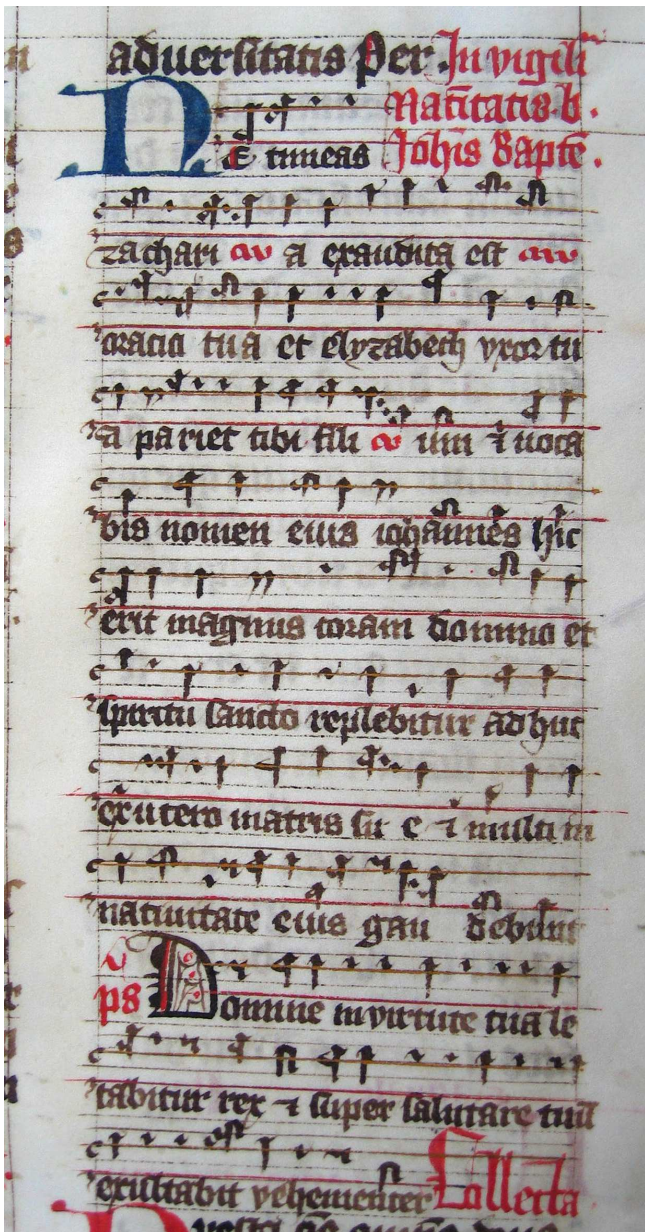 aduersitatis Per. In vigili
Natitatis b.
Ne timeas Johis Bapte.
zachari a exaudita est
oracio tua et elyzabeth vxor tu
a pariet tibi fili um et uoca
bis nomen eius iohannes hic
erit magnus coram domino et
spiritu sancto replebitur ad huc
ex utero matris su e et multi in
natiuitate eius gau debunt
ps Domine in virtute tua le
tabitur rex et super salutare tuu
exultabit vehementer Collecta